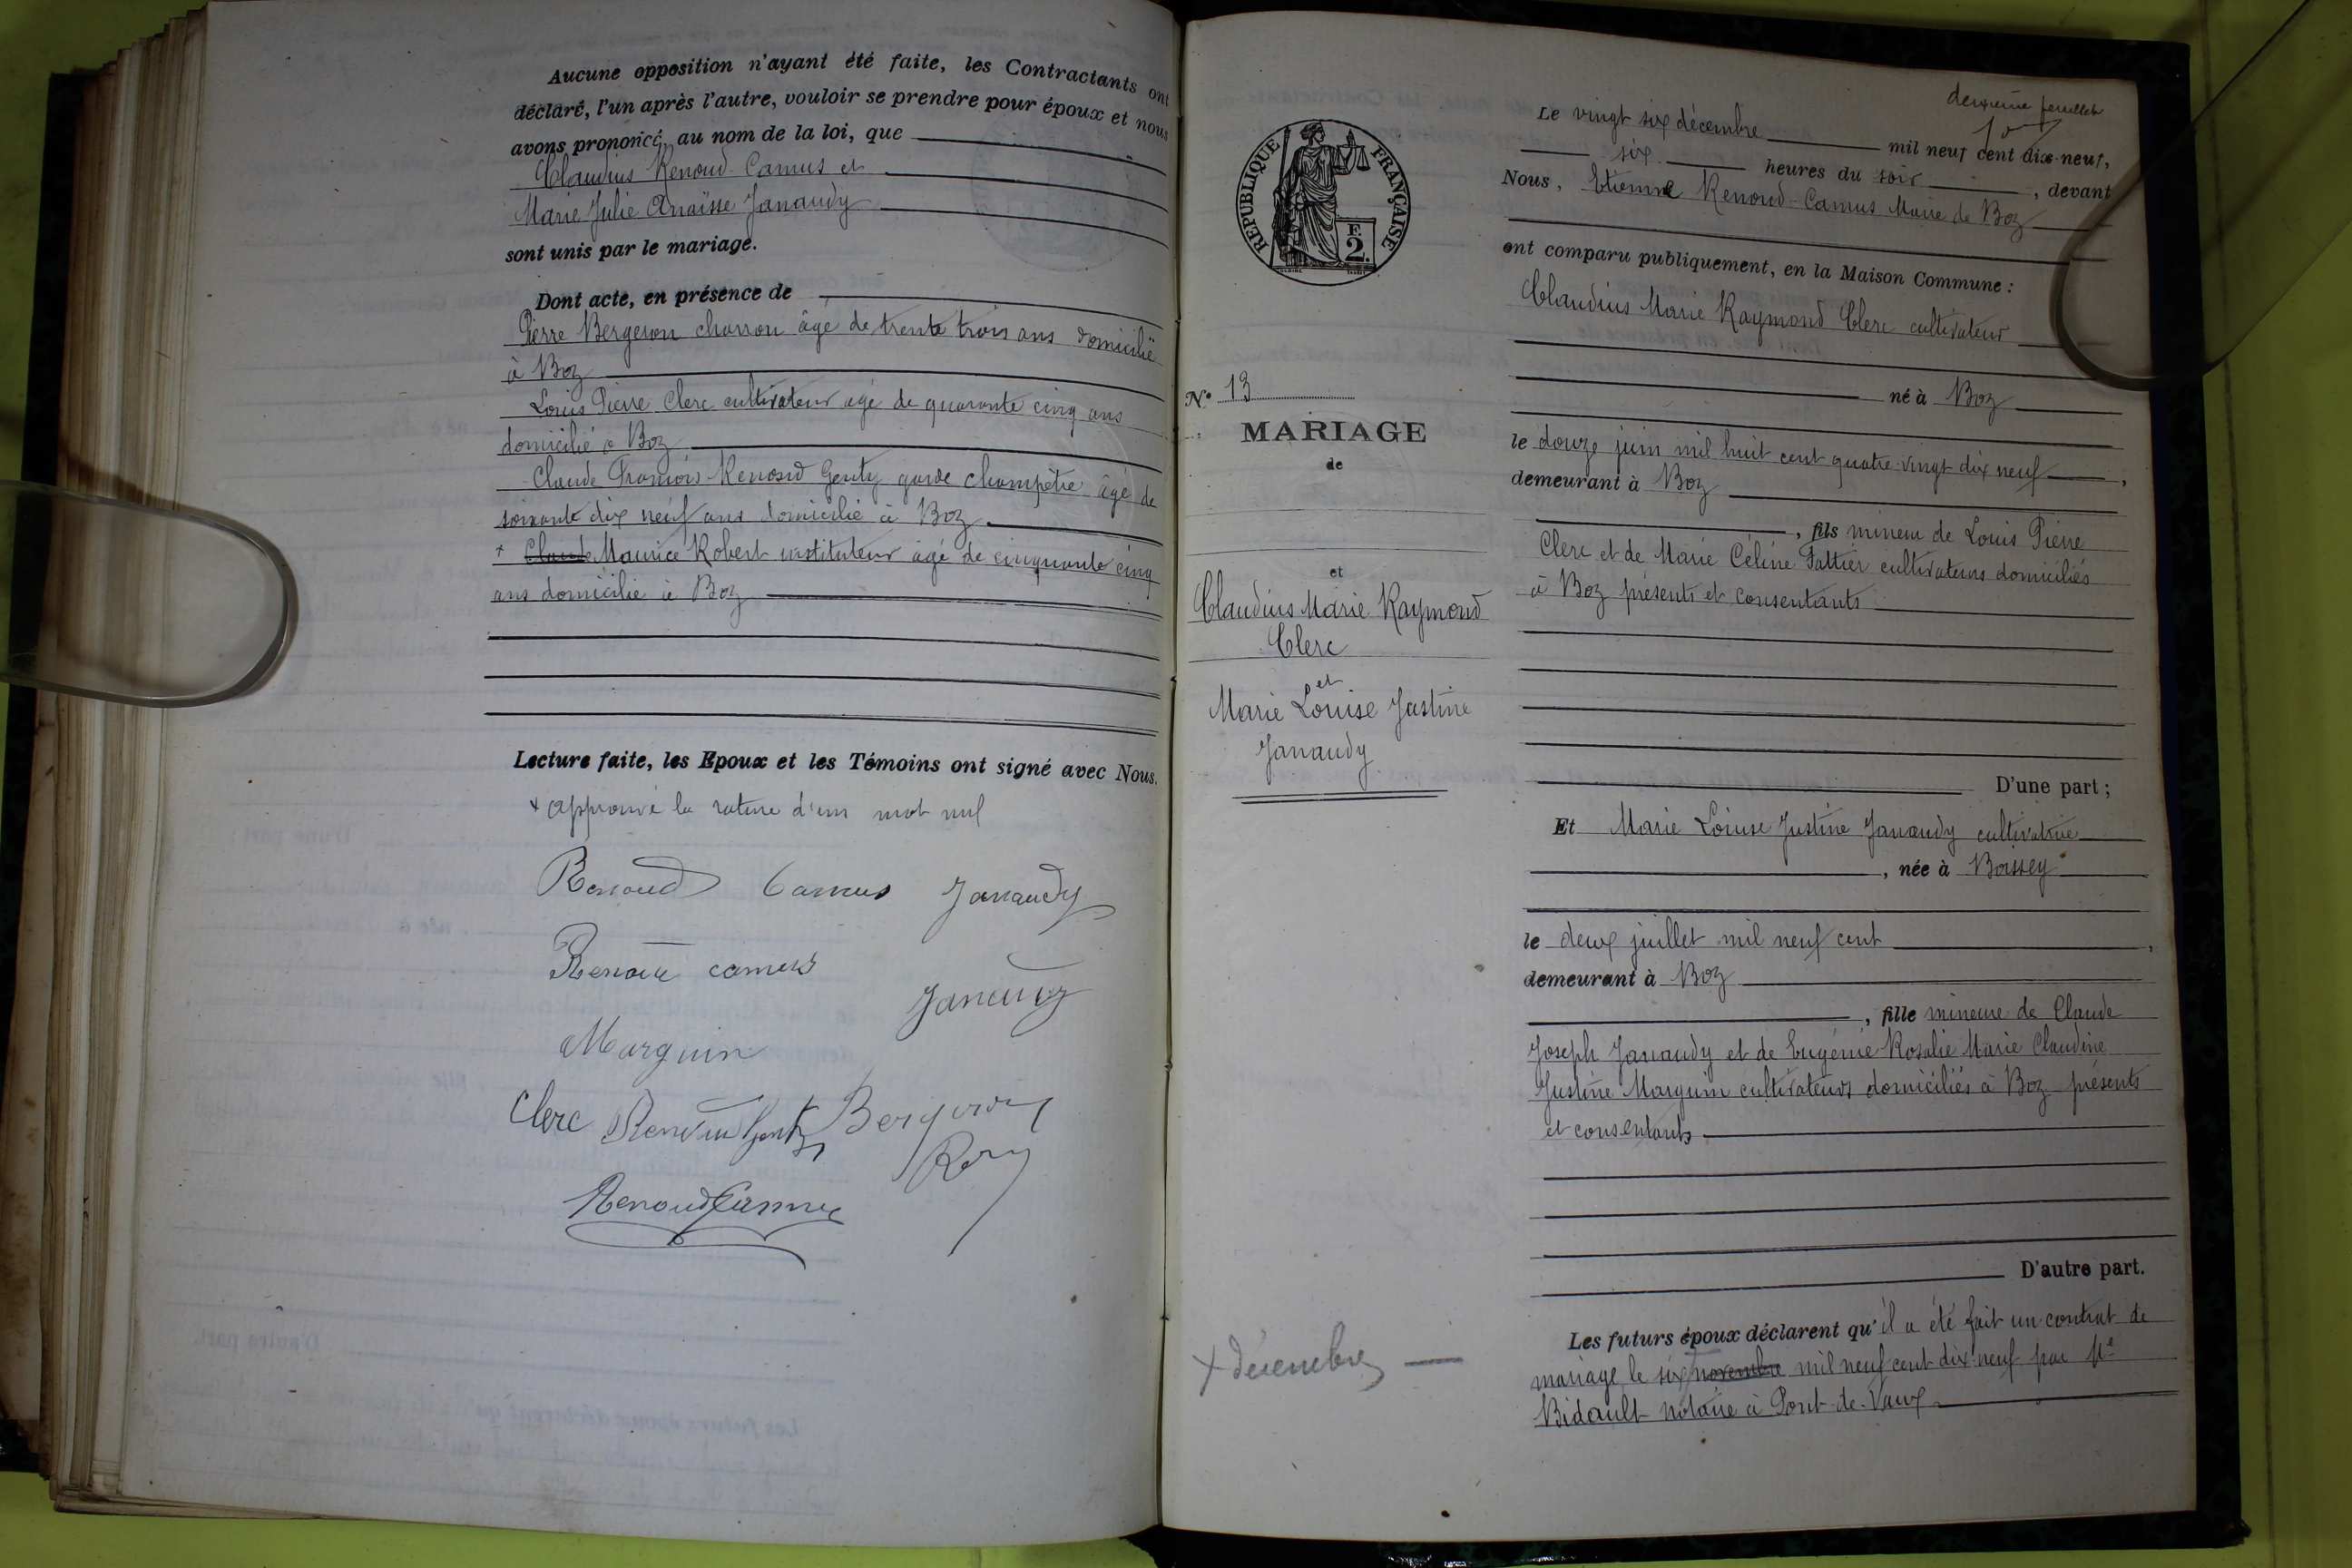 Aucune opposition n'ayant été faite, les Contractants ont
déclaré, l'un après l'autre, vouloir se prendre pour époux et nous
avons prononcé, au nom de la loi, que
Claudius Renoud-Camus et
Marie Julie Anaïsse Janaudy
sont unis par le mariage.
Dont acte, en présence de
Pierre Bergeron charron âgé de trente trois ans domicilié
à Boz
Louis Pierre Clerc cultivateur âgé de quarante cinq ans
domicilié à Boz
Claude François Renoud Genty garde champêtre âgé de
soixante dix neuf ans domicilié à Boz
+ Claude Maurice Robert instituteur âgé de cinquante cinq
ans domicilié à Boz
Lecture faite, les Epoux et les Témoins ont signé avec Nous.
+ approuvé la rature d'un mot nul
Renoud Camus Janaudy
Renoud camus
Janaudy
Marguin
Clerc Renoud Genty Bergeron
Renoud Camus
REPUBLIQUE FRANÇAISE
F.
2.
N° 13
MARIAGE
de
et
Claudius Marie Raymond
Clerc
et
Marie Louise Justine
Janaudy
+ décembre
deuxième feuillet
Le vingt six décembre mil neuf cent dix-neuf,
six heures du soir, devant
Nous, Etienne Renoud-Camus Maire de Boz
ont comparu publiquement, en la Maison Commune :
Claudius Marie Raymond Clerc cultivateur
né à Boz
le douze juin mil huit cent quatre-vingt dix neuf,
demeurant à Boz
, fils mineur de Louis Pierre
Clerc et de Marie Céline Pattier cultivateurs domiciliés
à Boz présents et consentants
D'une part ;
Et Marie Louise Justine Janaudy cultivatrice
, née à Boissey
le deux juillet mil neuf cent,
demeurant à Boz
, fille mineure de Claude
Joseph Janaudy et de Eugénie Rosalie Marie Claudine
Justine Marguin cultivateurs domiciliés à Boz présents
et consentants
D'autre part.
Les futurs époux déclarent qu'il a été fait un contrat de
mariage le six + novembre mil neuf cent dix-neuf par Me
Bidault notaire à Pont-de-Vaux